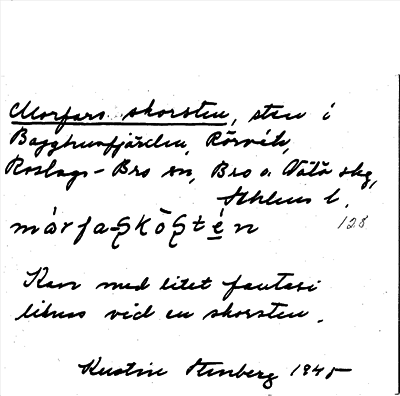 Morfars skorsten, sten i
Bagghusfjärden, Rörvik,
Roslags-Bro sn, Bro o. Vätö skg,
Sthlms l.
128
Kan med litet fantasi
liknas vid en skorsten.
Kustin Stenberg 1945